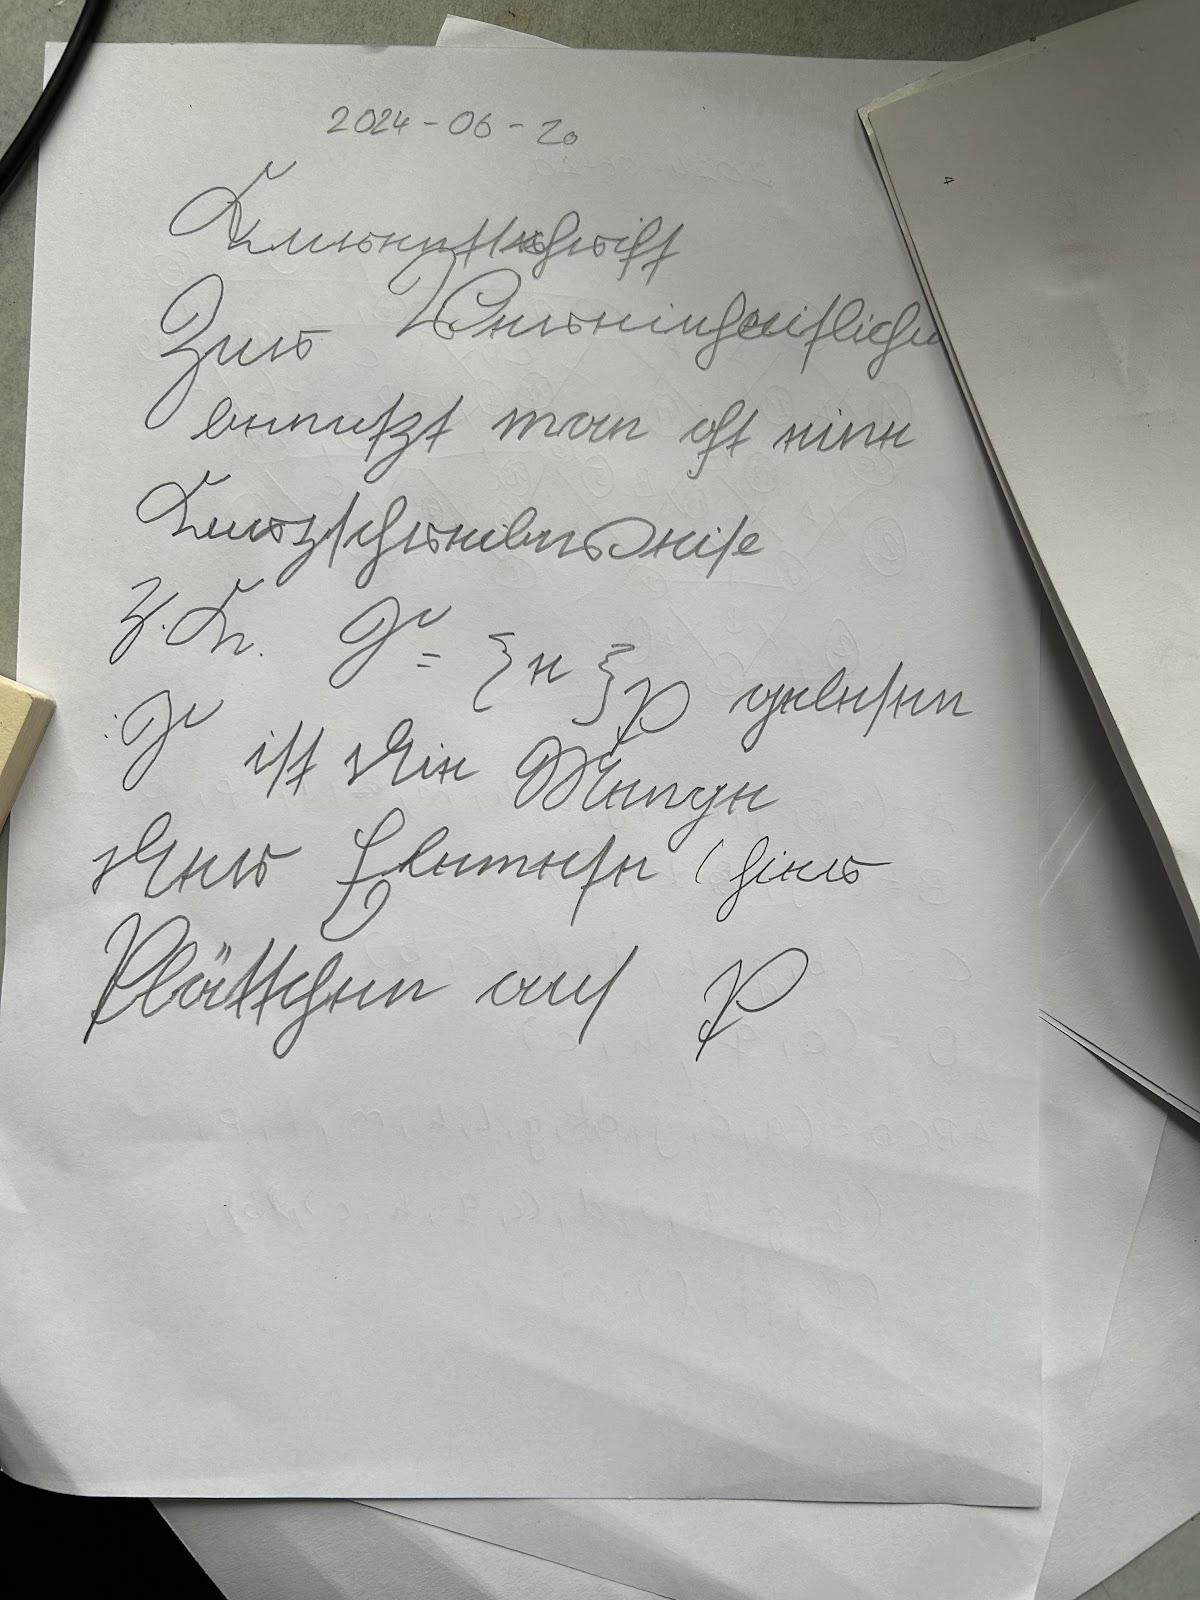 2024-06-20
Kurrentschrift
Zur
benutzt man oft eine
Kurzschreibweise
= {e}P gelesen
: ist die Menge
der Elemente (hier
Plättchen auf P